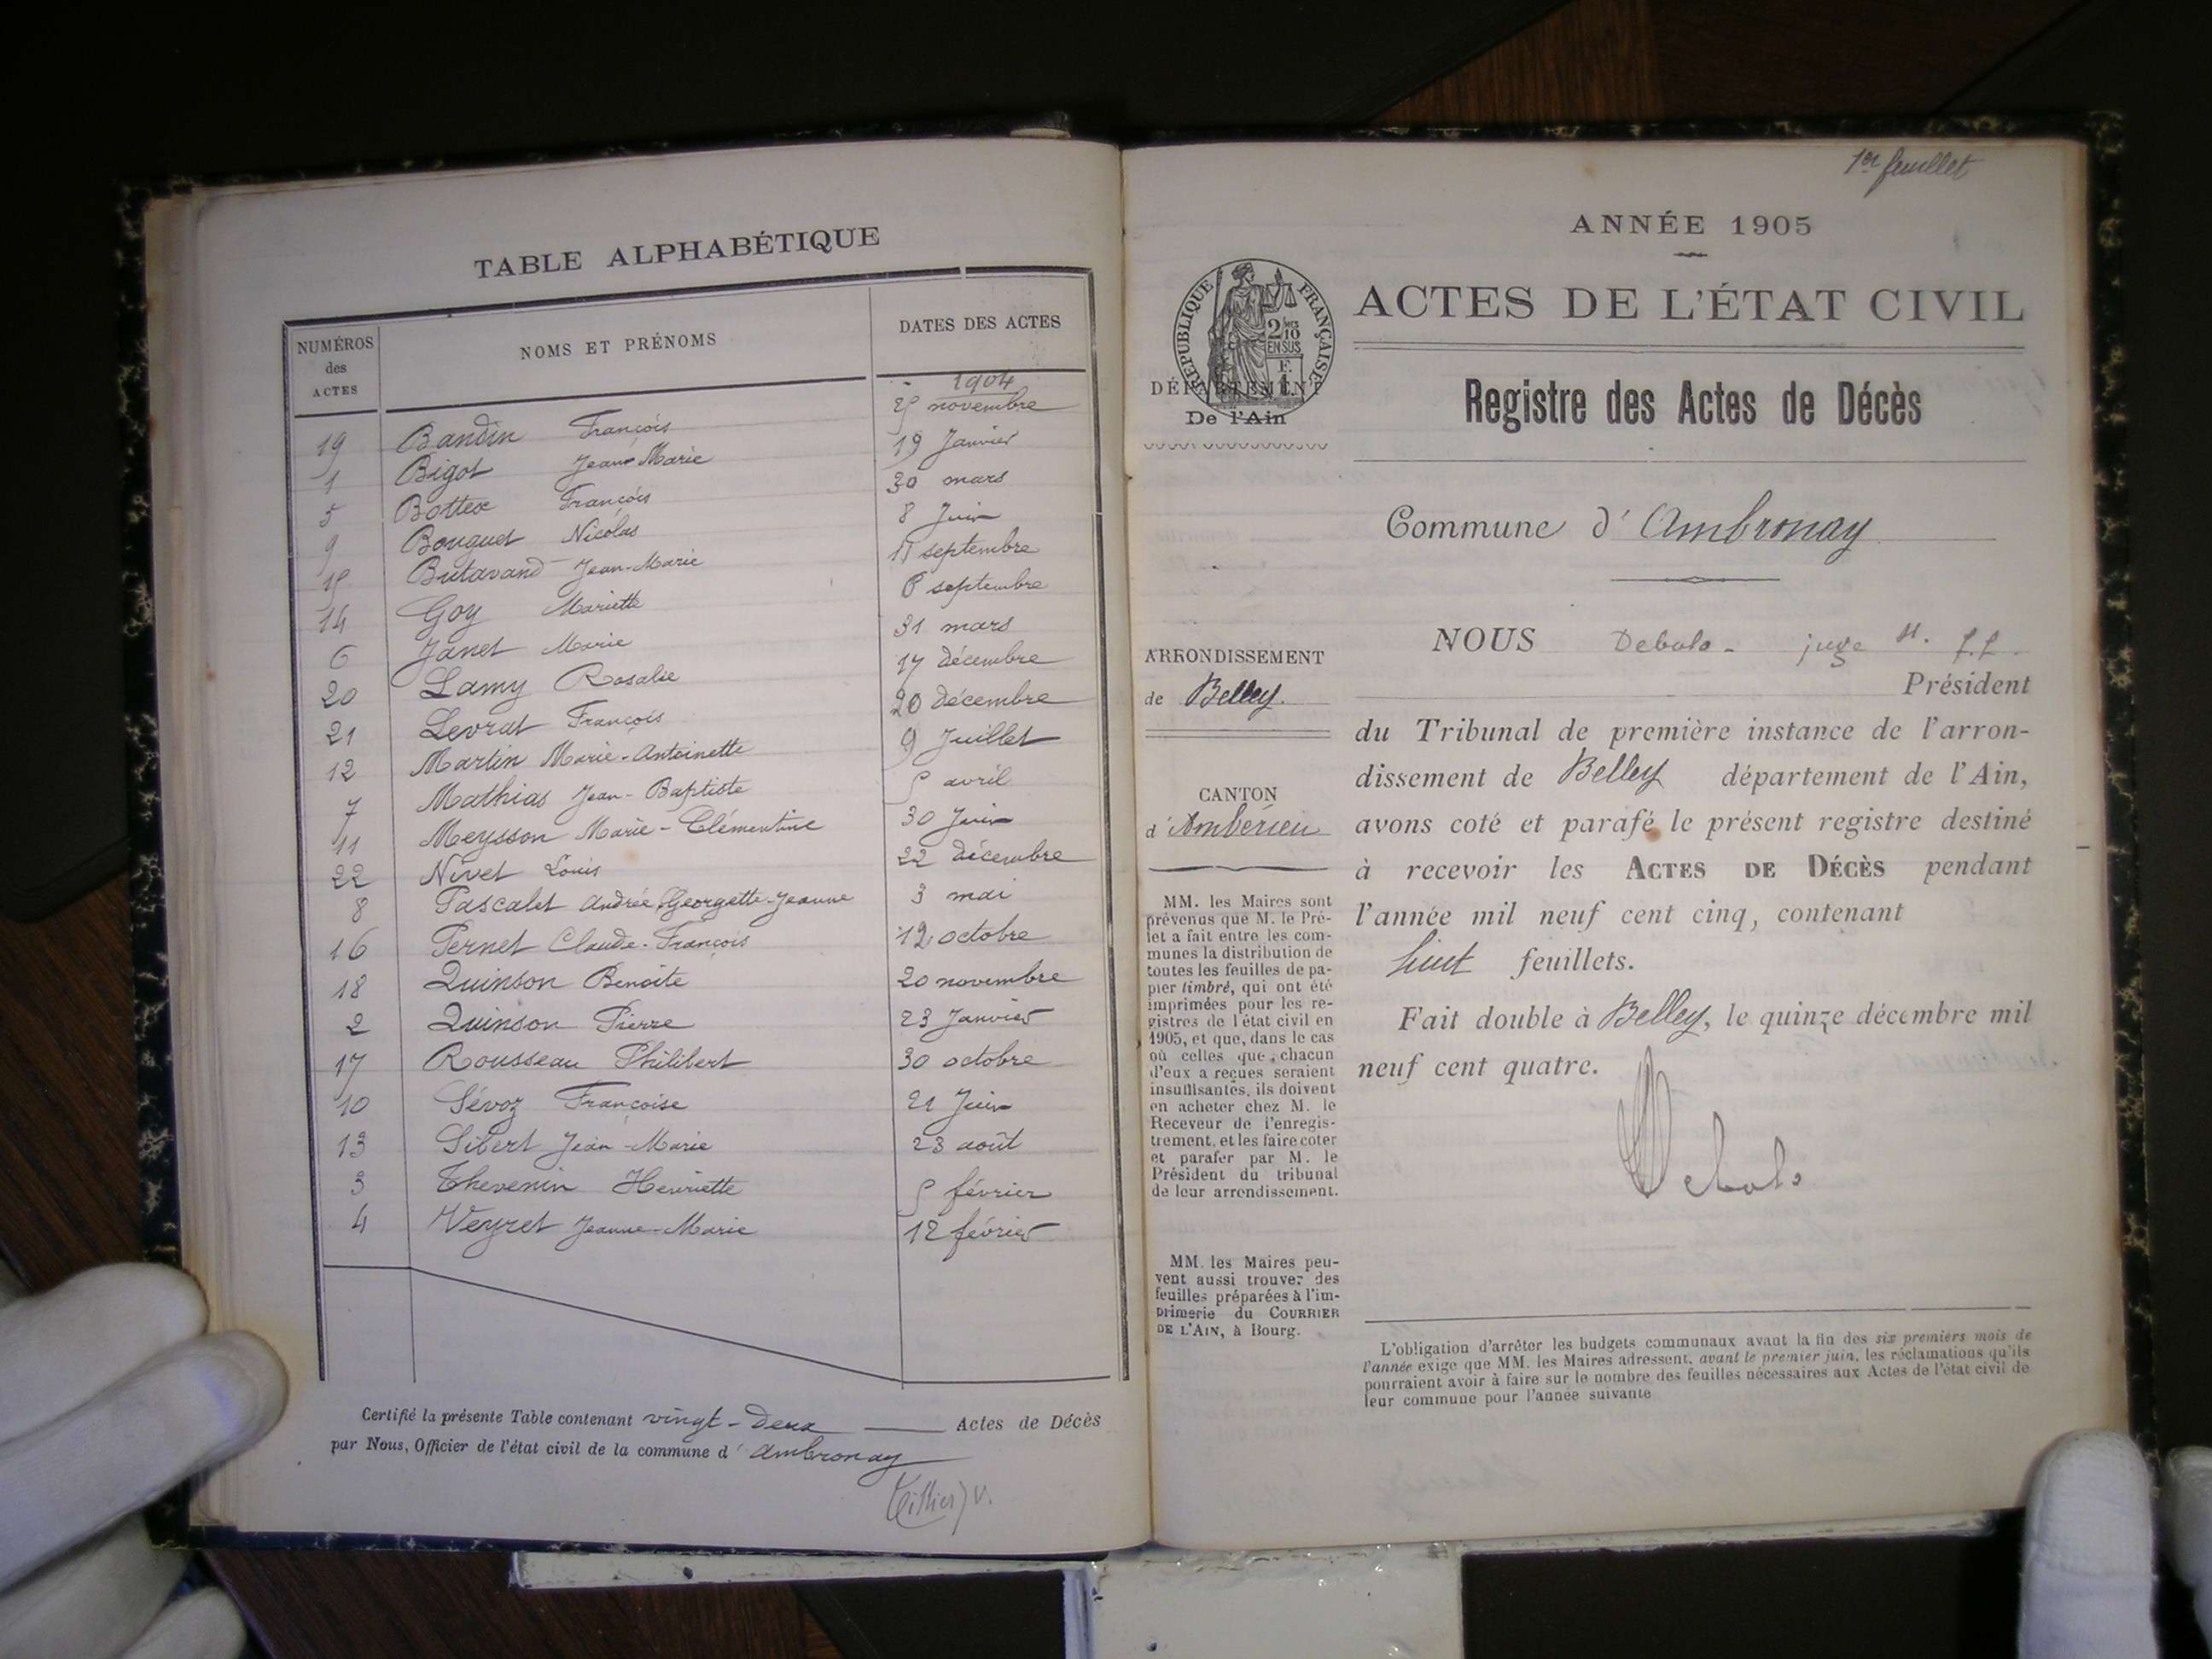 TABLE ALPHABÉTIQUE
NUMÉROS des ACTES NOMS ET PRÉNOMS DATES DES ACTES
1904
19 Bandin François 25 novembre
1 Bigot Jean-Marie 19 Janvier
5 Bottex François 30 mars
9 Bouguet Nicolas 8 Juin
15 Butavand Jean-Marie 15 septembre
14 Goy Mariette 6 septembre
6 Janet Marie 31 mars
20 Lamy Rosalie 17 décembre
21 Levrat François 20 décembre
12 Martin Marie-Antoinette 9 Juillet
7 Mathias Jean-Baptiste 5 avril
11 Meysson Marie-Clémentine 30 Juin
22 Nivet Louis 22 décembre
8 Pascalet Andrée Georgette-Jeanne 3 mai
16 Pernet Claude-François 12 octobre
18 Quinson Benoite 20 novembre
2 Quinson Pierre 23 Janvier
17 Rousseau Philibert 30 octobre
10 Sévoz Françoise 21 Juin
13 Sibert Jean-Marie 23 août
3 Thevenin Henriette 5 février
4 Veyret Jeanne-Marie 12 février
Certifié la présente Table contenant vingt-deux Actes de Décès
par Nous, Officier de l'état civil de la commune d'Ambronay
1er feuillet
ANNÉE 1905
ACTES DE L'ÉTAT CIVIL
RÉPUBLIQUE FRANÇAISE
2/10
EN SUS
F.
1
DÉPARTEMENT
De l'Ain
Registre des Actes de Décès
Commune d'Ambronay
ARRONDISSEMENT
de Belley.
CANTON
d'Ambérieu
MM. les Maires sont
prévenus que M. le Pré-
fet a fait entre les com-
munes la distribution de
toutes les feuilles de pa-
pier timbré, qui ont été
imprimées pour les re-
gistres de l'état civil en
1905, et que, dans le cas
où celles que chacun
d'eux a reçues seraient
insuffisantes, ils doivent
en acheter chez M. le
Receveur de l'enregis-
trement, et les faire coter
et parafer par M. le
Président du tribunal
de leur arrondissement.
MM. les Maires peu-
vent aussi trouver des
feuilles préparées à l'im-
primerie du COURRIER
DE L'AIN, à Bourg.
NOUS juge f.f.
Président
du Tribunal de première instance de l'arron-
dissement de Belley département de l'Ain,
avons coté et parafé le présent registre destiné
à recevoir les ACTES DE DÉCÈS pendant
l'année mil neuf cent cinq, contenant
huit feuillets.
Fait double à Belley, le quinze décembre mil
neuf cent quatre.
L'obligation d'arrêter les budgets communaux avant la fin des six premiers mois de
l'année exige que MM. les Maires adressent, avant le premier juin, les réclamations qu'ils
pourraient avoir à faire sur le nombre des feuilles nécessaires aux Actes de l'état civil de
leur commune pour l'année suivante